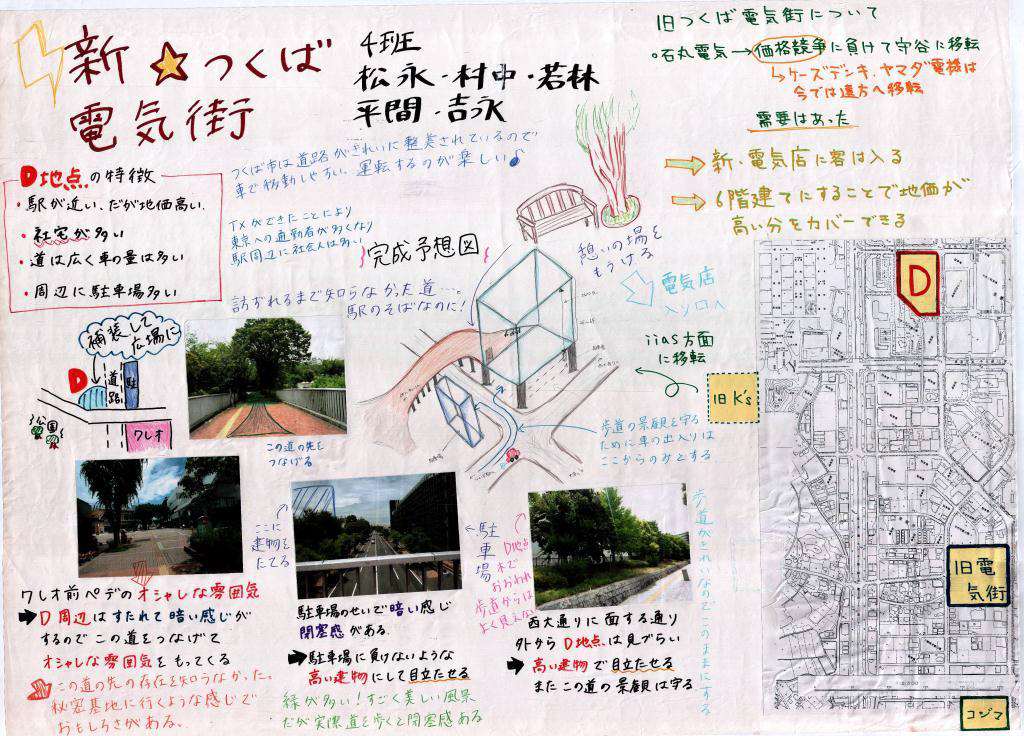 新☆つくば
電気街
4班
松永・村中・若林
平間・吉永
旧つくば電気街について
・石丸電気→価格競争に負けて守谷に移転
↳ケーズデンキ、ヤマダ電機は
今では遠方へ移転
需要はあった
⇒新・電気店に客は入る
⇒6階建てにすることで地価が
高い分をカバーできる
D地点の特徴
・駅が近い、だが地価高い.
・社宅が多い
・道は広く車の量は多い
・周辺に駐車場多い
つくば市は道路がきれいに整美されているので
車で移動しやすい、運転するのが楽しい♪
TXができたことにより
東京への通勤者が多くなり
駅周辺に社会人は多い
完成予想図
訪ずれるまで知らなかった道…。
駅のそばなのに!
憩いの場を
もうける
電気店
入り口へ
iias方面
に移転
旧K's
D
旧電
気街
コジマ
補装して
広場に
D
道路
駐
公園
クレオ
この道の先を
つなげる
歩道の景観を守る
ために車の出入りは
ここからのみとする
ここに
建物を
たてる
←駐車場
D地点
木で
おおわれ
歩道からは
よく見えない
歩道がきれいなのでこのままにする
クレオ前ペデのオシャレな雰囲気
➡D周辺はすたれて暗い感じが
するのでこの道をつなげて
オシャレな雰囲気をもってくる
この道の先の存在を知らなかった。
秘密基地に行くような感じで
おもしろさがある。
駐車場のせいで暗い感じ
閉塞感がある.
➡駐車場に負けないような
高い建物にして目立たせる
緑が多い!すごく美しい風景
だが実際道を歩くと閉塞感ある
西大通りに面する通り
外からD地点は見づらい
➡高い建物で目立たせる
またこの道の景観は守る